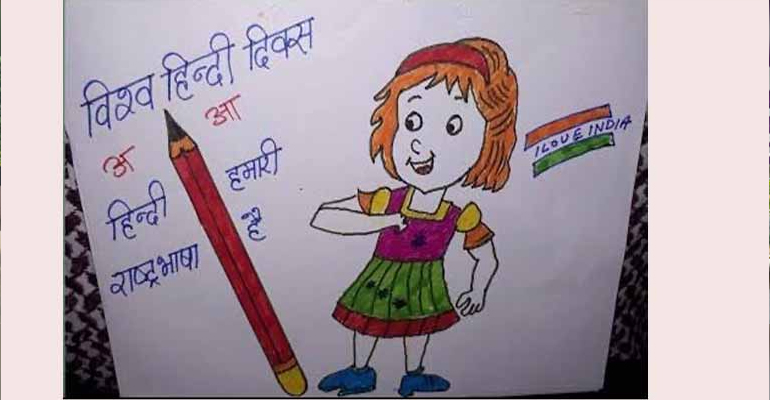 विश्व हिन्दी दिवस
अ आ
हिन्दी हमारी
राष्ट्रभाषा है
I LOVE INDIA